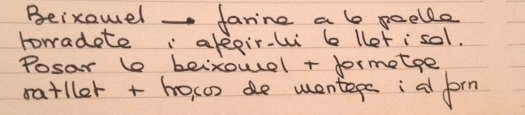 Beixamel → farina a la paella
torradeta i afegir-lui la llet i sal.
Posar la beixamel + formatge
ratllat + troços de mantega i al forn